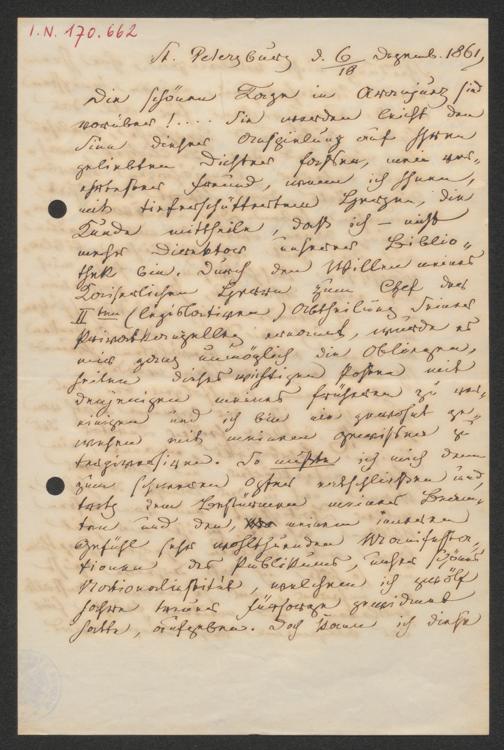 I.N. 170.662
St. Petersburg d. 6/18 Dezemb. 1861
Die schönen Tage in Aranjuez sind
vorüber!.... Sie werden leicht den
Sinn dieser Anspielung auf Ihren
geliebten Dichter fassen, mein ver-
ehrtester Freund, wenn ich Ihnen,
mit tieferschüttertem Herzen, die
Kunde mittheile, daß ich – nicht
mehr Direktor unserer Biblio-
thek bin. Durch den Willen meines
Kaiserlichen Herrn zum Chef der
II ten (legislativen) Abtheilung Seiner
Privatkanzellei ernannt, wurde es
mir ganz unmöglich die Obliegen-
heiten dieses wichtigen Postens mit
denjenigen meines früheren zu ver-
einigen und ich bin nie gewohnt ge-
wesen mit meinem Gewissen zu
tergiversiren. So mußte ich mich denn
zum schweren Opfer entschließen und
trotz dem Bestürmen meiner Beam-
ten und den, meinem inneren
Gefühl sehr wohlthuenden Manifesta-
tionen des Publikums, unser schönes
Nationalinstitut, welchem ich zwölf
Jahre treuer Fürsorge gewidmet
hatte, aufgeben. Doch kann ich diese